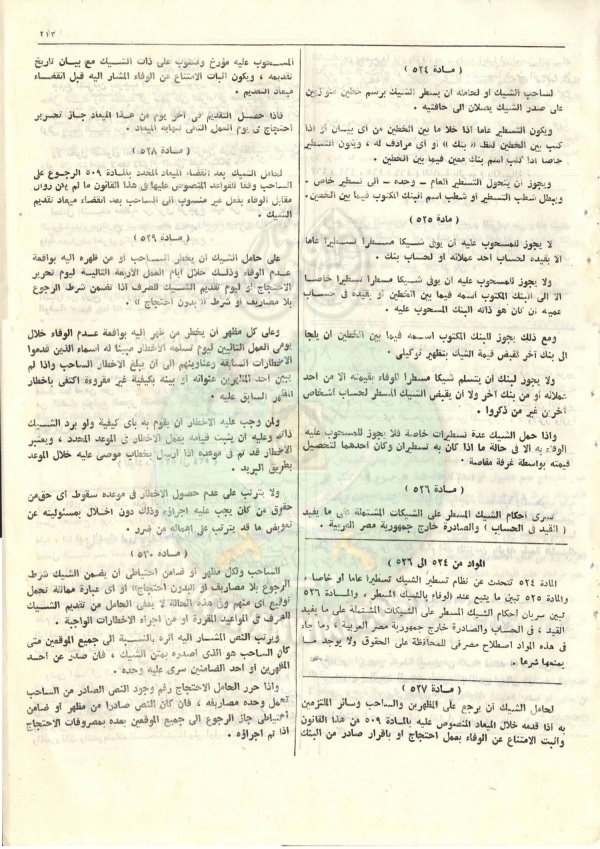 ٢١٣
( مادة ٥٢٤ )
لصاحب الشيك او لحامله ان يسطر الشيك برسم خطين متوازيين
على صدر الشيك يصلان الى حافتيه .
ويكون التسطير عاما اذا خلا ما بين الخطين من اى بيان او اذا
كتب بين الخطين لفظ « بنك » او اى مرادف له ، ويكون التسطير
خاصا اذا كتب اسم بنك معين فيما بين الخطين .
ويجوز ان يتحول التسطير العام – وحده – الى تسطير خاص .
ويبطل شطب التسطير او شطب اسم البنك المكتوب فيما بين الخطين .
( مادة ٥٢٥ )
لا يجوز للمسحوب عليه ان يوفى شيكا مسطرا تسطيرا عاما
الا بقيده لحساب احد عملائه او لحساب بنك .
ولا يجوز للمسحوب عليه ان يوفى شيكا مسطرا تسطيرا خاصا
الا الى البنك المكتوب اسمه فيما بين الخطين او بقيده فى حساب
عميله ان كان هو ذاته البنك المسحوب عليه .
ومع ذلك يجوز للبنك المكتوب اسمه فيما بين الخطين ان يلجا
الى بنك آخر لقبض قيمة الشيك بتظهير توكيلى .
ولا يجوز لبنك ان يتسلم شيكا مسطرا للوفاء بقيمته الا من احد
عملائه او من بنك آخر ولا ان يقبض الشيك المسطر لحساب اشخاص
آخرين غير من ذكروا .
واذا حمل الشيك عدة تسطيرات خاصة فلا يجوز للمسحوب عليه
الوفاء به الا فى حالة ما اذا كان به تسطيران وكان احدهما لتحصيل
قيمته بواسطة غرفة مقاصة .
( مادة ٥٢٦ )
تسرى احكام الشيك المسطر على الشيكات المشتملة على ما يفيد
( القيد فى الحساب ) والصادرة خارج جمهورية مصر العربية .
المواد من ٥٢٤ الى ٥٢٦
المادة ٥٢٤ تتحدث عن نظام تسطير الشيك تسطيرا عاما او خاصا ،
والمادة ٥٢٥ تبين ما يتبع عند الوفاء بالشيك المسطر ، والمادة ٥٢٦
تبين سريان احكام الشيك المسطر على الشيكات المشتملة على ما يفيد
القيد ، فى الحساب والصادرة خارج جمهورية مصر العربية ، وما جاء
فى هذه المواد اصطلاح مصرفى للمحافظة على الحقوق ولا يوجد ما
يمنعها شرعا .
( مادة ٥٢٧ )
لحامل الشيك ان يرجع على المظهرين والساحب وسائر الملتزمين
به اذا قدمه خلال الميعاد المنصوص عليه بالمادة ٥٠٩ من هذا القانون
واثبت الامتناع عن الوفاء بعمل احتجاج او باقرار صادر من البنك
المسحوب عليه مؤرخ ومكتوب على ذات الشيك مع بيان تاريخ
تقديمه ، ويكون اثبات الامتناع عن الوفاء المشار اليه قبل انقضاء
ميعاد التقديم .
فاذا حصل التقديم فى آخر يوم من هذا الميعاد جاز تحرير
احتجاج فى يوم العمل التالى لنهاية الميعاد .
( مادة ٥٢٨ )
لحامل الشيك بعد انقضاء الميعاد المحدد بالمادة ٥٠٩ الرجوع على
الساحب وفقا للقواعد المنصوص عليها فى هذا القانون ما لم يكن زوال
مقابل الوفاء بفعل غير منسوب الى الساحب بعد انقضاء ميعاد تقديم
الشيك .
( مادة ٥٢٩ )
على حامل الشيك ان يخطر الساحب او من ظهره اليه بواقعة
عدم الوفاء وذلك خلال ايام العمل الاربعة التالية ليوم تحرير
الاحتجاج او ليوم تقديم الشيك للصرف اذا تضمن شرط الرجوع
بلا مصاريف او شرط « بدون احتجاج » .
وعلى كل مظهر ان يخطر من ظهر اليه بواقعة عدم الوفاء خلال
يومى العمل التاليين ليوم تسلمه الاخطار مبينا له اسماء الذين قدموا
الاخطارات السابقة وعناوينهم الى ان يبلغ الاخطار الساحب واذا لم
يبين احد المظهرين عنوانه او بينه بكيفية غير مقروءة اكتفى باخطار
المظهر السابق عليه .
ولمن وجب عليه الاخطار ان يقوم به باى كيفية ولو برد الشيك
ذاته وعليه ان يثبت قيامه بعمل الاخطار فى الموعد المحدد ، ويعتبر
الاخطار قد تم فى موعده اذا ارسل بخطاب موصى عليه خلال الموعد
بطريق البريد .
ولا يترتب على عدم حصول الاخطار فى موعده سقوط اى حق من
حقوق من كان يجب عليه اجراؤه وذلك دون اخلال بمسئوليته عن
تعويض ما قد يترتب على اهماله من ضرر .
( مادة ٥٣٠ )
للساحب ولكل مظهر او ضامن احتياطى ان يضمن الشيك شرط
الرجوع بلا مصاريف او «بدون احتجاج» او اى عبارة مماثلة تحمل
توقيع اى منهم وفى هذه الحالة لا يعفى الحامل من تقديم الشيك
للصرف فى المواعيد المقررة او من اجراء الاخطارات الواجبة .
ويرتب النص المشار اليه اثره بالنسبة الى جميع الموقعين متى
كان الساحب هو الذى اصدره بمتن الشيك ، فان صدر عن احد
المظهرين او احد الضامنين سرى عليه وحده .
واذا حرر الحامل الاحتجاج رغم وجود النص الصادر من الساحب
تحمل وحده مصاريفه ، فان كان النص صادرا من مظهر او ضامن
احتياطى جاز الرجوع الى جميع الموقعين بعده بمصروفات الاحتجاج
اذا تم اجراؤه .